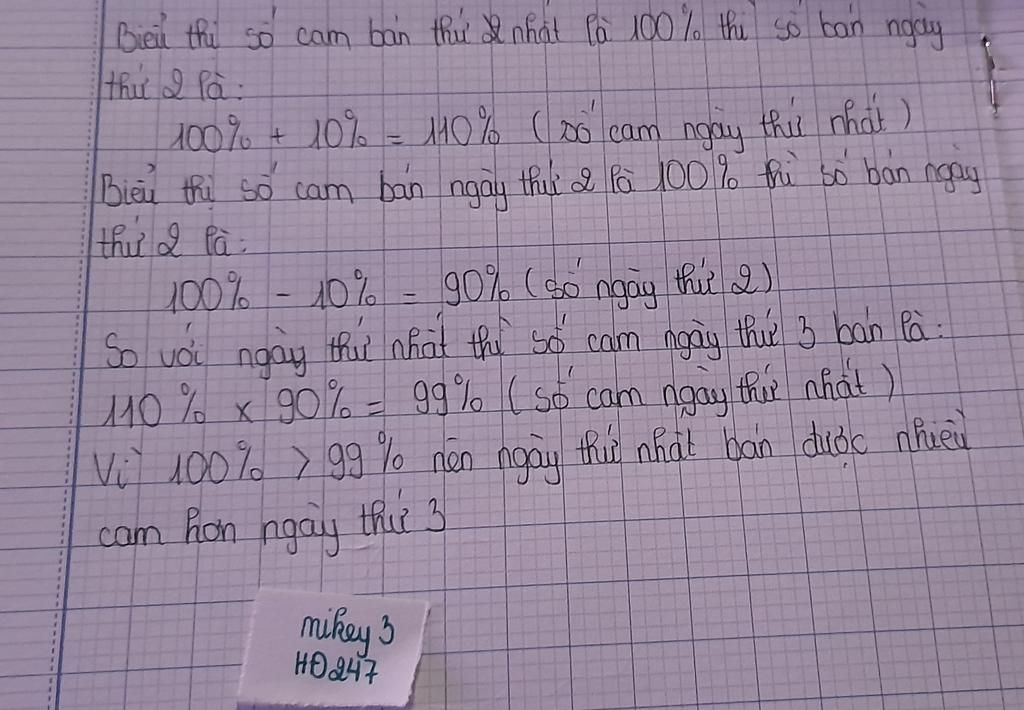 Biểu thị số cam bán thứ nhất là 100% thì số bán ngày
thứ 2 là:
100% + 10% = 110% (số cam ngày thứ nhất)
Biểu thị số cam bán ngày thứ 2 là 100% thì số bán ngày
thứ 2 là:
100% - 10% = 90% (số ngày thứ 2)
So với ngày thứ nhất thì số cam ngày thứ 3 bán là:
110% x 90% = 99% (số cam ngày thứ nhất)
Vì 100% > 99% nên ngày thứ nhất bán được nhiều
cam hơn ngày thứ 3
mikey 3
HĐ247